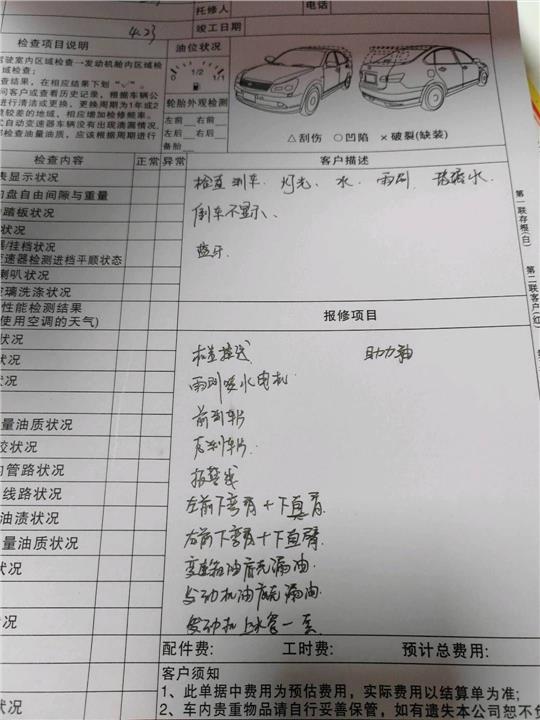 托修人
电话
4.23
竣工日期
检查项目说明
油位状况
驾驶室内区域检查→发动机舱内区域检
域检查;
查结果，在相应结果下划“√”。
问客户或查看历史记录，根据车辆公
进行清洁或更换，更换周期为1年或2
境较差的地域，相应增加检修频率。
式自动变速器车辆没有出现渗漏情况，
需检查油量油质，应该根据周期进行
1/2
轮胎外观检测
左前 右前
左后 右后
备胎
△刮伤 ○凹陷 ×破裂(缺装)
检查内容 正常 异常
客户描述
表显示状况
向盘自由间隙与重量
踏板状况
状况
器/挂档状况
变速器检测进档平顺状态
喇叭状况
玻璃洗涤状况
性能检测结果
使用空调的天气)
检查刹车. 灯光、水. 雨刷. 玻璃水.
倒车不显示、
蓝牙.
第一联存根(白)
第二联客户(红)
报修项目
检查接线 助力油
雨刮喷水电机
前刹车片
后刹车片.
报警线
左前下弯臂+下直臂.
右前下弯臂+下直臂.
变速箱油底壳漏油.
发动机油底壳漏油.
发动机上水管一套.
状况
状况
状况
量油质状况
状况
管路状况
线路状况
油渍状况
量油质状况
状况
状况
状况
配件费: 工时费: 预计总费用:
客户须知
1、此单据中费用为预估费用，实际费用以结算单为准;
2、车内贵重物品请自行妥善保管，如有遗失本公司恕不